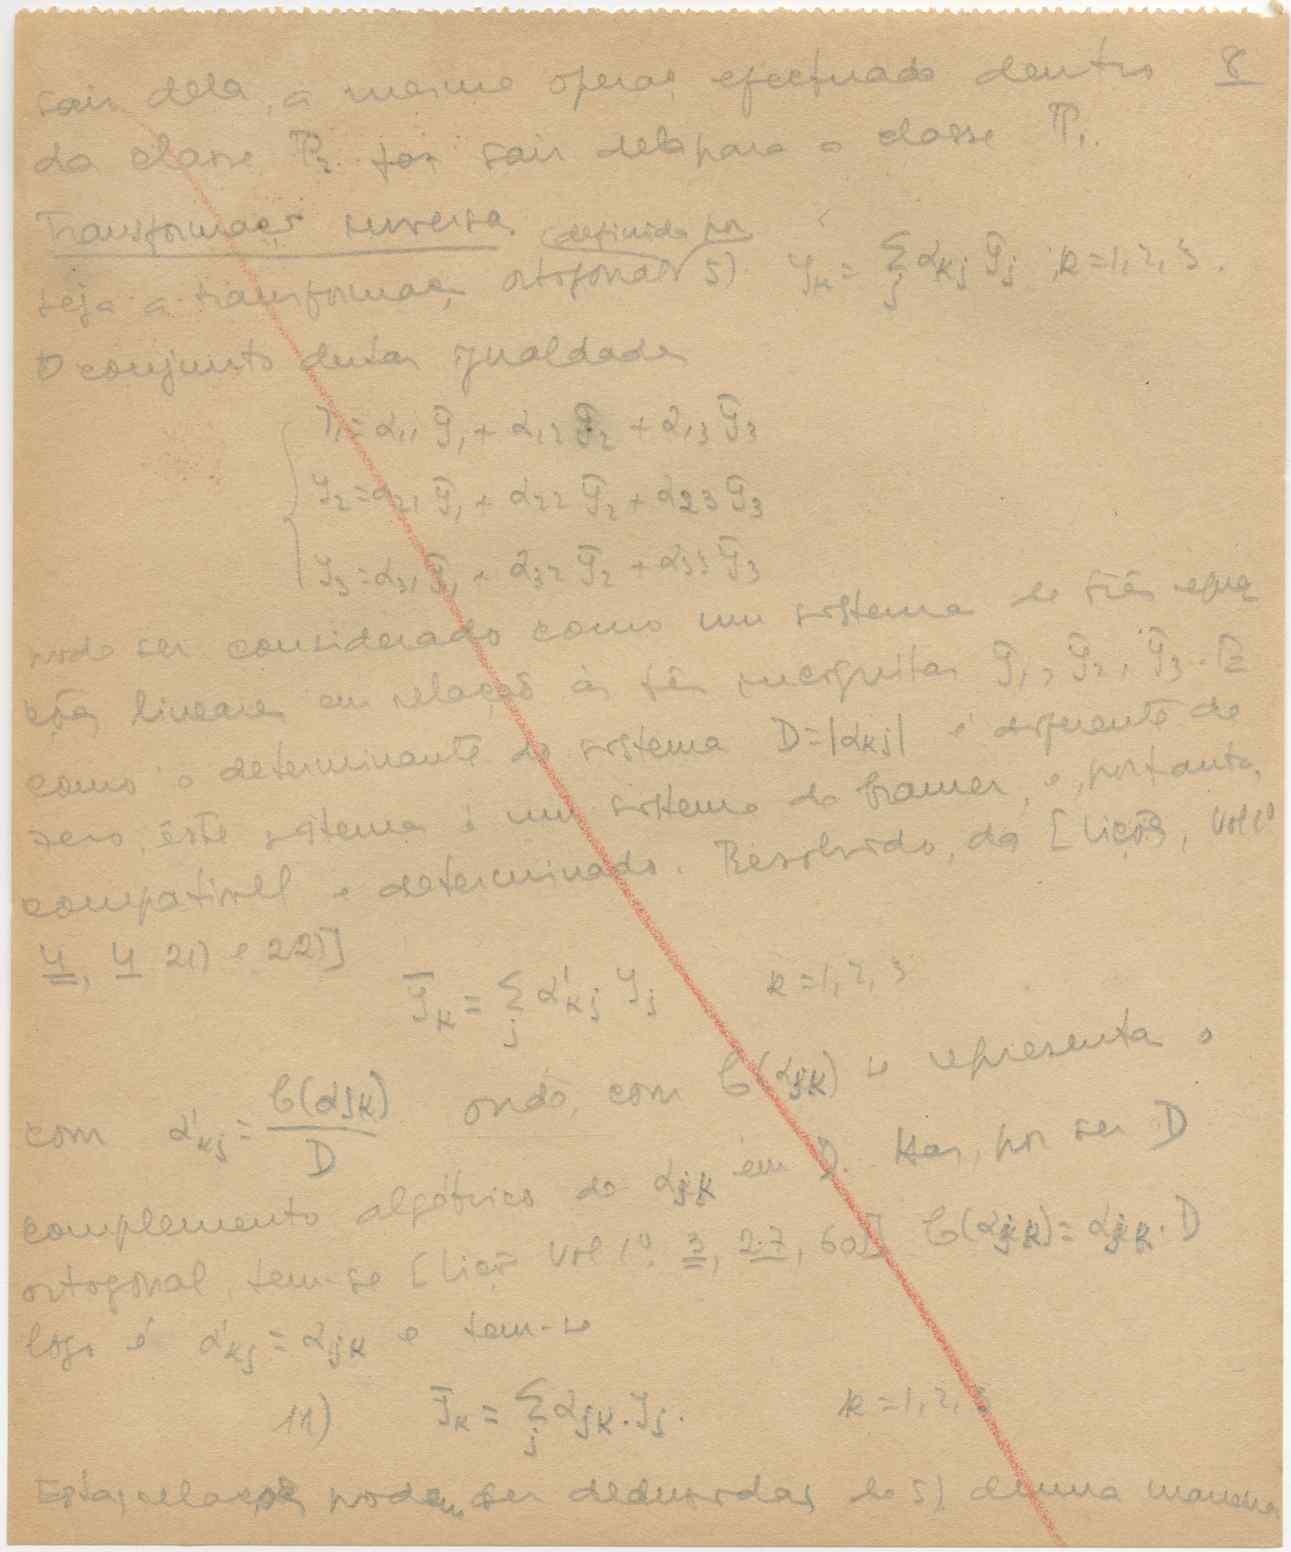 sair dela, a mesma operaç. efectuada dentro 8
da classe P₂ faz sair dela para a classe P₁.
Transformação inversa
definida por
seja a transformaç. ortogonal 5) y_k = Σ_j α_kj ȳ_j ; k=1,2,3.
O conjunto destas igualdades
y₁ = α₁₁ ȳ₁ + α₁₂ ȳ₂ + α₁₃ ȳ₃
y₂ = α₂₁ ȳ₁ + α₂₂ ȳ₂ + α₂₃ ȳ₃
y₃ = α₃₁ ȳ₁ + α₃₂ ȳ₂ + α₃₃ ȳ₃
pode ser considerado como um sistema de três equa
ções lineares em relação às três incógnitas ȳ₁, ȳ₂, ȳ₃. E
como o determinante do sistema D=|α_kj| é diferente de
zero, êste sistema é um sistema de Cramer, e, portanto,
compatível e determinado. Resolvido, dá [Lições, Vol 1º
4, 4 21) e 22)]
ȳ_k = Σ_j α'_kj y_j k=1,2,3
com α'_kj = C(α_jk)/D onde, com C(α_jk) se representa o
complemento algébrico de α_jk em D. Mas, por ser D
ortogonal, tem-se [Liç. Vol 1º. 3, 2.7, 60)] C(α_jk) = α_jk . D
logo é α'_kj = α_jk e tem-se
11) ȳ_k = Σ_j α_jk . y_j. k=1,2,3
Estas relações podem ser deduzidas de 5) duma maneira